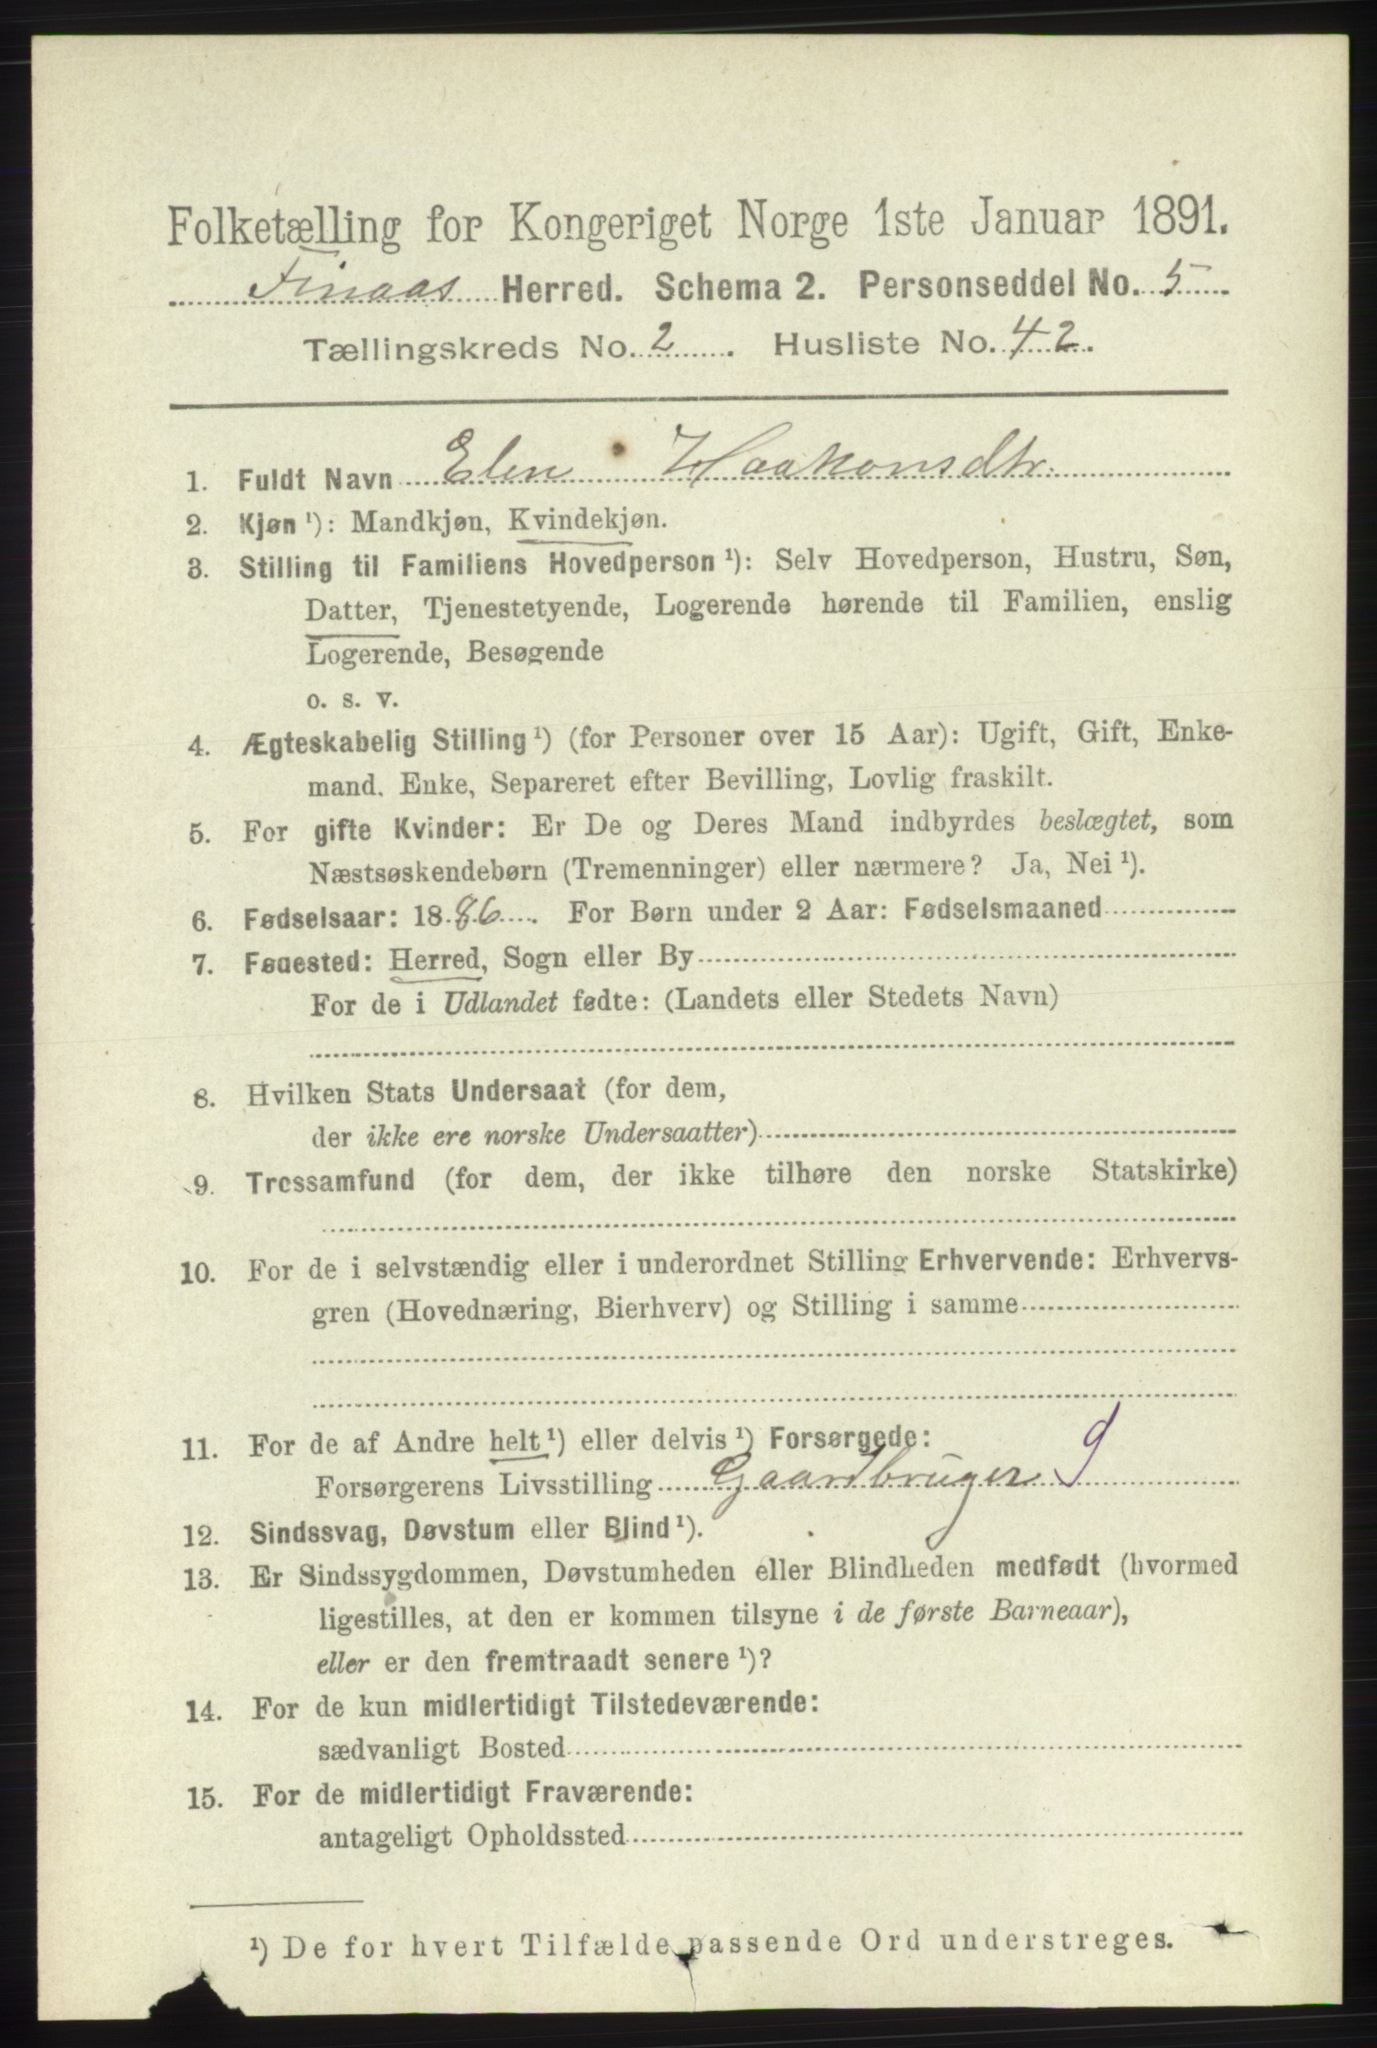 Folketælling for Kongeriget Norge 1ste Januar 1891.
Finaas Herred. Schema 2. Personseddel No. 5
Tællingskreds No. 2. Husliste No. 42.
1. Fuldt Navn Elen Haakonsdtr.
2. Kjøn ¹): Mandkjøn, Kvindekjøn.
3. Stilling til Familiens Hovedperson ¹): Selv Hovedperson, Hustru, Søn,
Datter, Tjenestetyende, Logerende hørende til Familien, enslig
Logerende, Besøgende
o. s. v.
4. Ægteskabelig Stilling ¹) (for Personer over 15 Aar): Ugift, Gift, Enke-
mand. Enke, Separeret efter Bevilling, Lovlig fraskilt.
5. For gifte Kvinder: Er De og Deres Mand indbyrdes beslægtet, som
Næstsøskendebørn (Tremenninger) eller nærmere? Ja, Nei ¹).
6. Fødselsaar: 1886. For Børn under 2 Aar: Fødselsmaaned
7. Føaested: Herred, Sogn eller By
For de i Udlandet fødte: (Landets eller Stedets Navn)
8. Hvilken Stats Undersaat (for dem,
der ikke ere norske Undersaatter)
9. Trossamfund (for dem, der ikke tilhøre den norske Statskirke)
10. For de i selvstændig eller i underordnet Stilling Erhvervende: Erhvervs-
gren (Hovednæring, Bierhverv) og Stilling i samme
11. For de af Andre helt ¹) eller delvis ¹) Forsørgede:
Forsørgerens Livsstilling Gaardbruger 9
12. Sindssvag, Døvstum eller Blind ¹).
13. Er Sindssygdommen, Døvstumheden eller Blindheden medfødt (hvormed
ligestilles, at den er kommen tilsyne i de første Barneaar),
eller er den fremtraadt senere ¹)?
14. For de kun midlertidigt Tilstedeværende:
sædvanligt Bosted
15. For de midlertidigt Fraværende:
antageligt Opholdssted
¹) De for hvert Tilfælde passende Ord understreges.